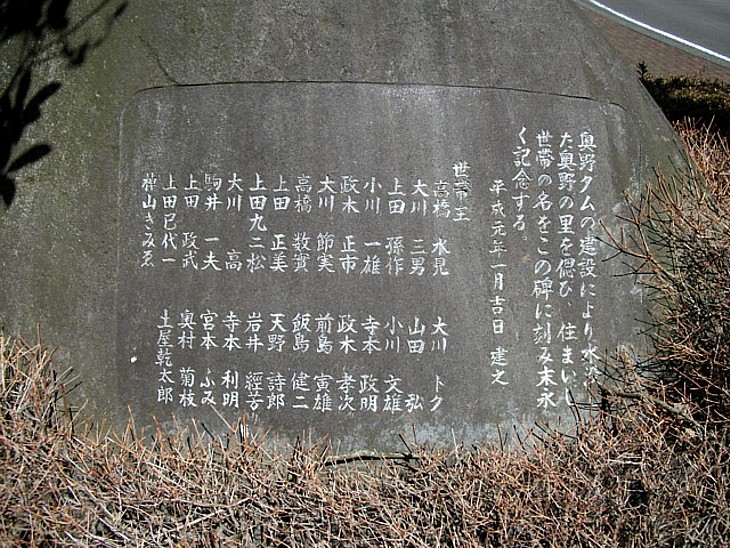 奥野ダムの建設により水没
た奥野の里を偲び、住まいし
世帯の名をこの碑に刻み末永
く記念する。
平成元年一月吉日 建之
世帯主
高橋 水見 大川 トク
大川 三男 山田 弘
上田 孫作 小川 文雄
小川 一雄 寺本 政明
政木 正市 政木 孝次
大川 節実 前島 寅雄
高橋 数實 飯島 健二
上田 正美 天野 詩郎
上田九二松 岩井 經芳
大川 高 寺本 利明
駒井 一夫 宮本 ふみ
上田 政武 奥村 菊枝
上田巳代一 土屋乾太郎
神山きみゑ